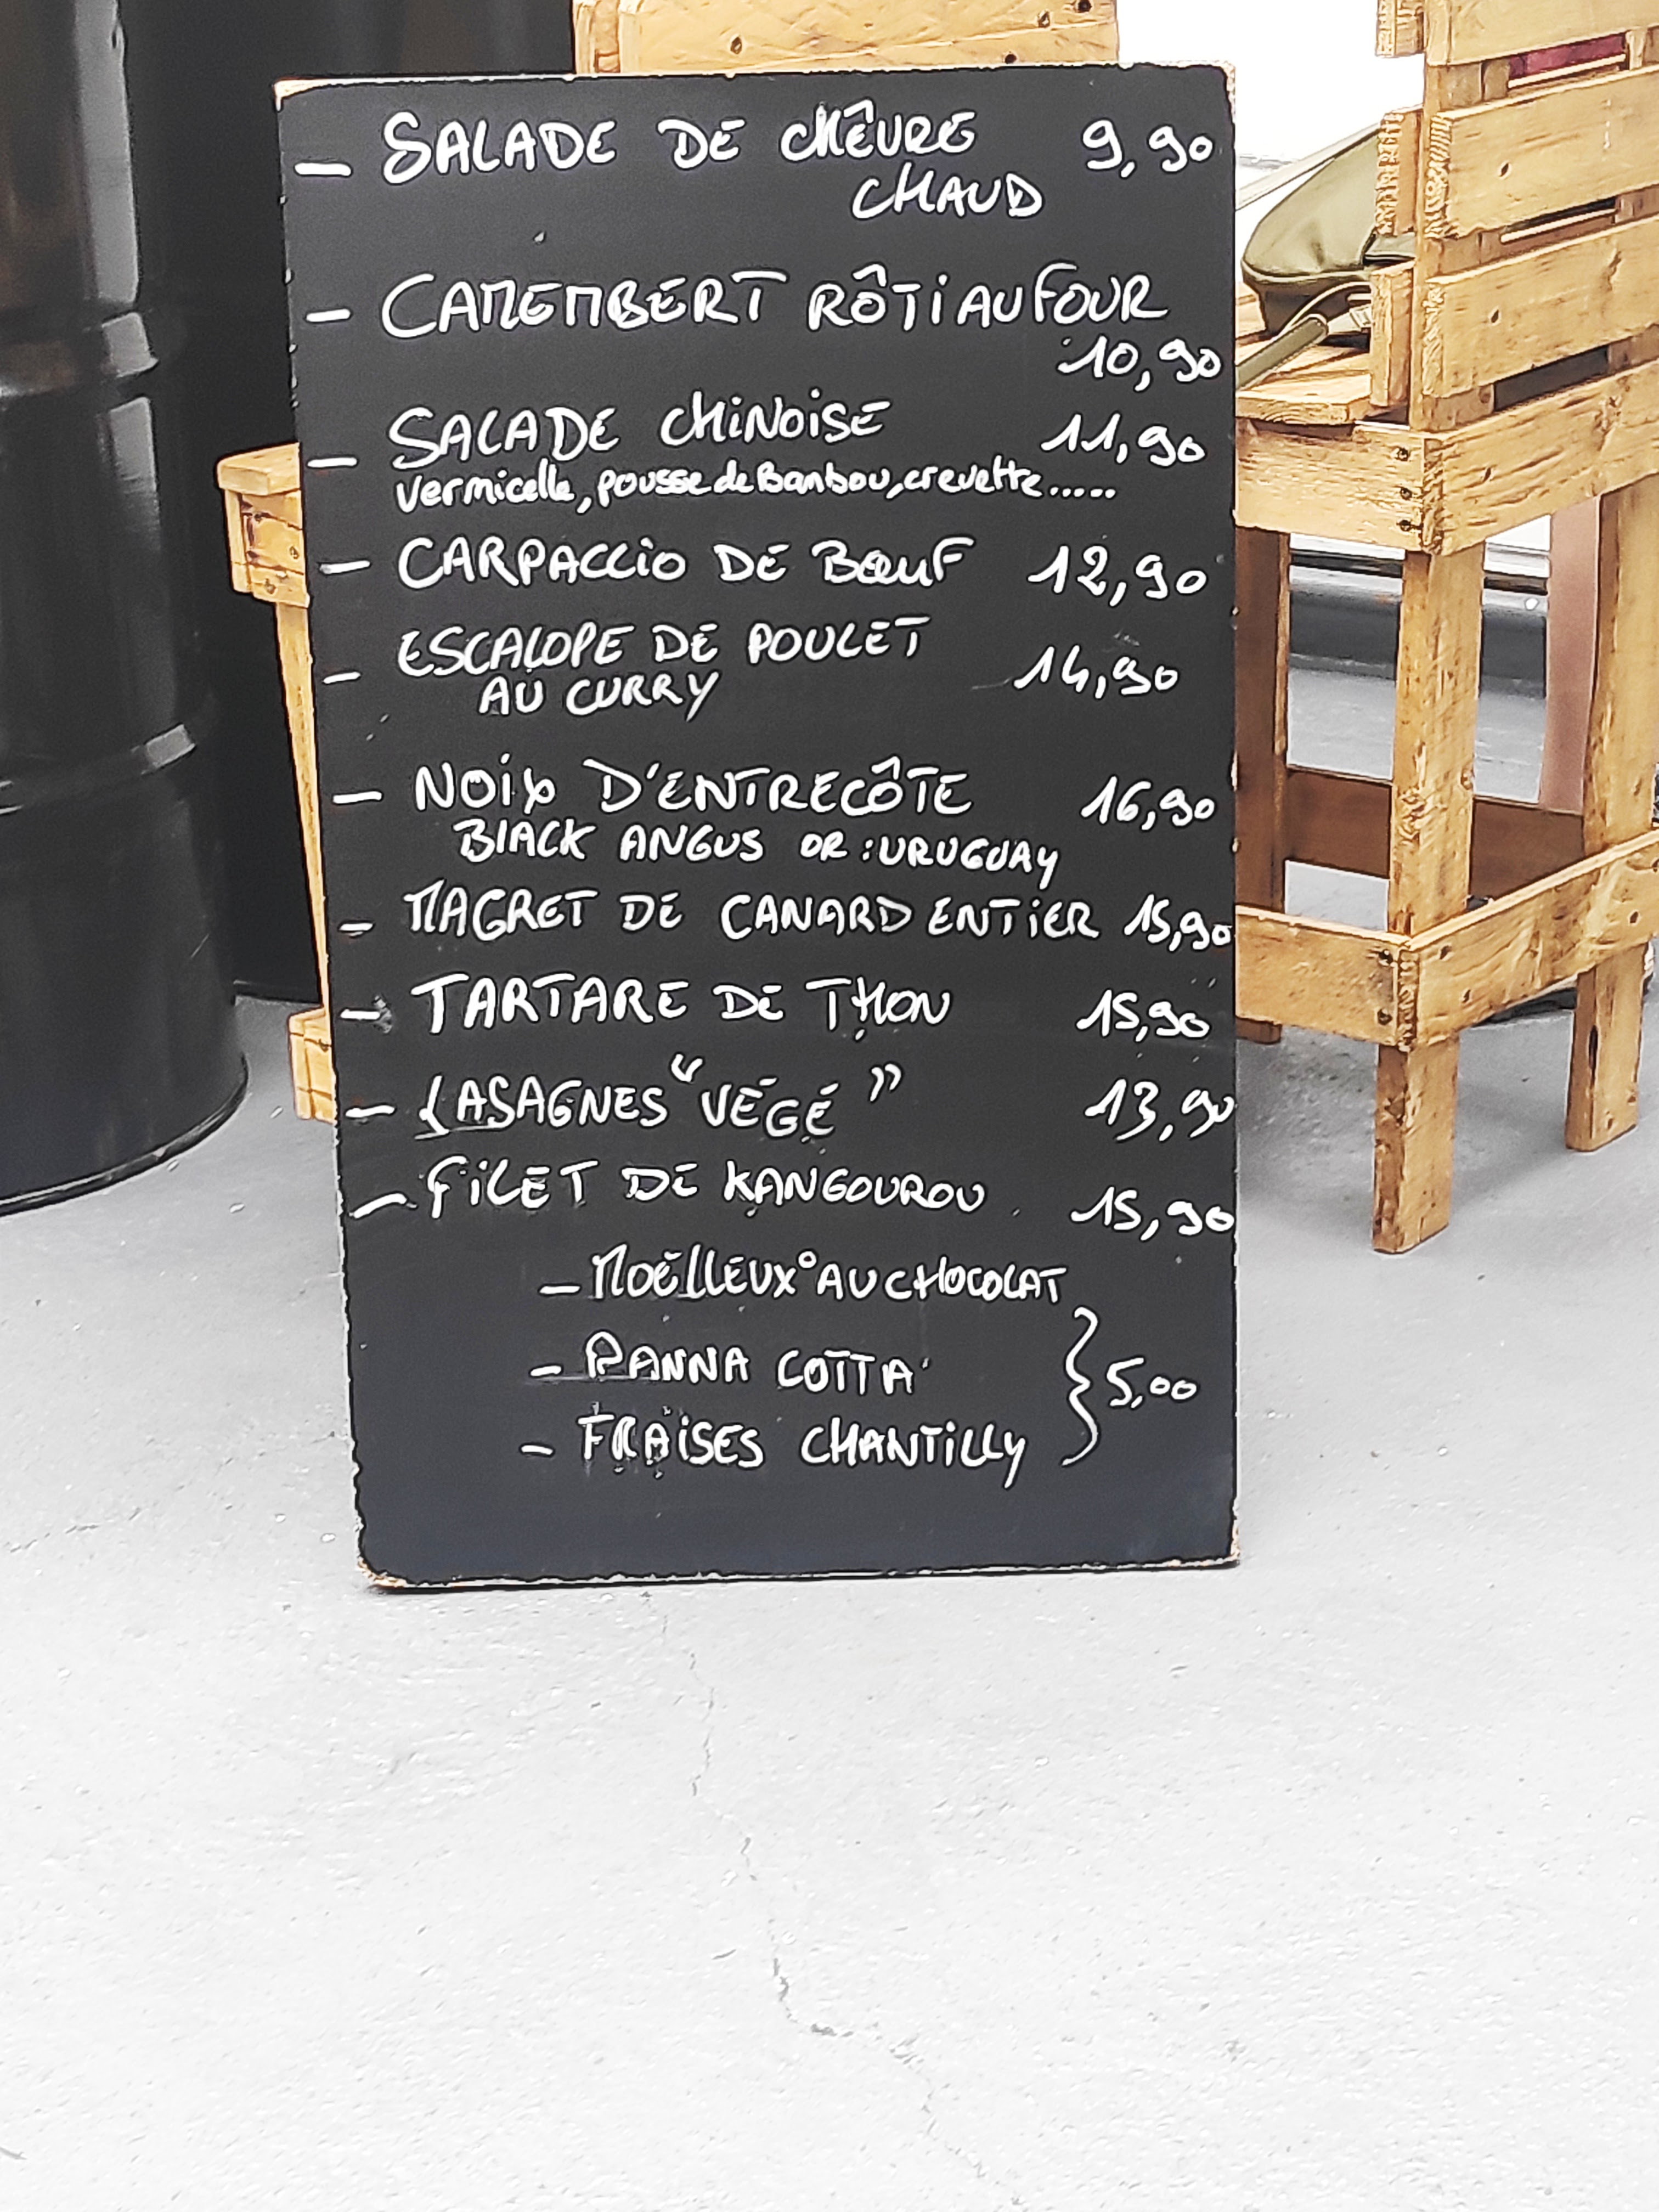 – SALADE DE CHÊVRE 9,90
CHAUD
– CAMEMBERT RÔTI AU FOUR
10,90
– SALADE CHINOISE 11,90
vermicelle, pousse de Banbou, crevette.....
– CARPACCIO DE BŒUF 12,90
– ESCALOPE DE POULET 14,90
AU CURRY
– NOIX D'ENTRECÔTE 16,90
BLACK ANGUS OR : URUGUAY
– MAGRET DE CANARD ENTIER 15,90
– TARTARE DE THON 15,90
– LASAGNES "VÉGÉ" 13,90
– FILET DE KANGOUROU 15,90
– MOËLLEUX° AU CHOCOLAT
– PANNA COTTA } 5,00
– FRAISES CHANTILLY